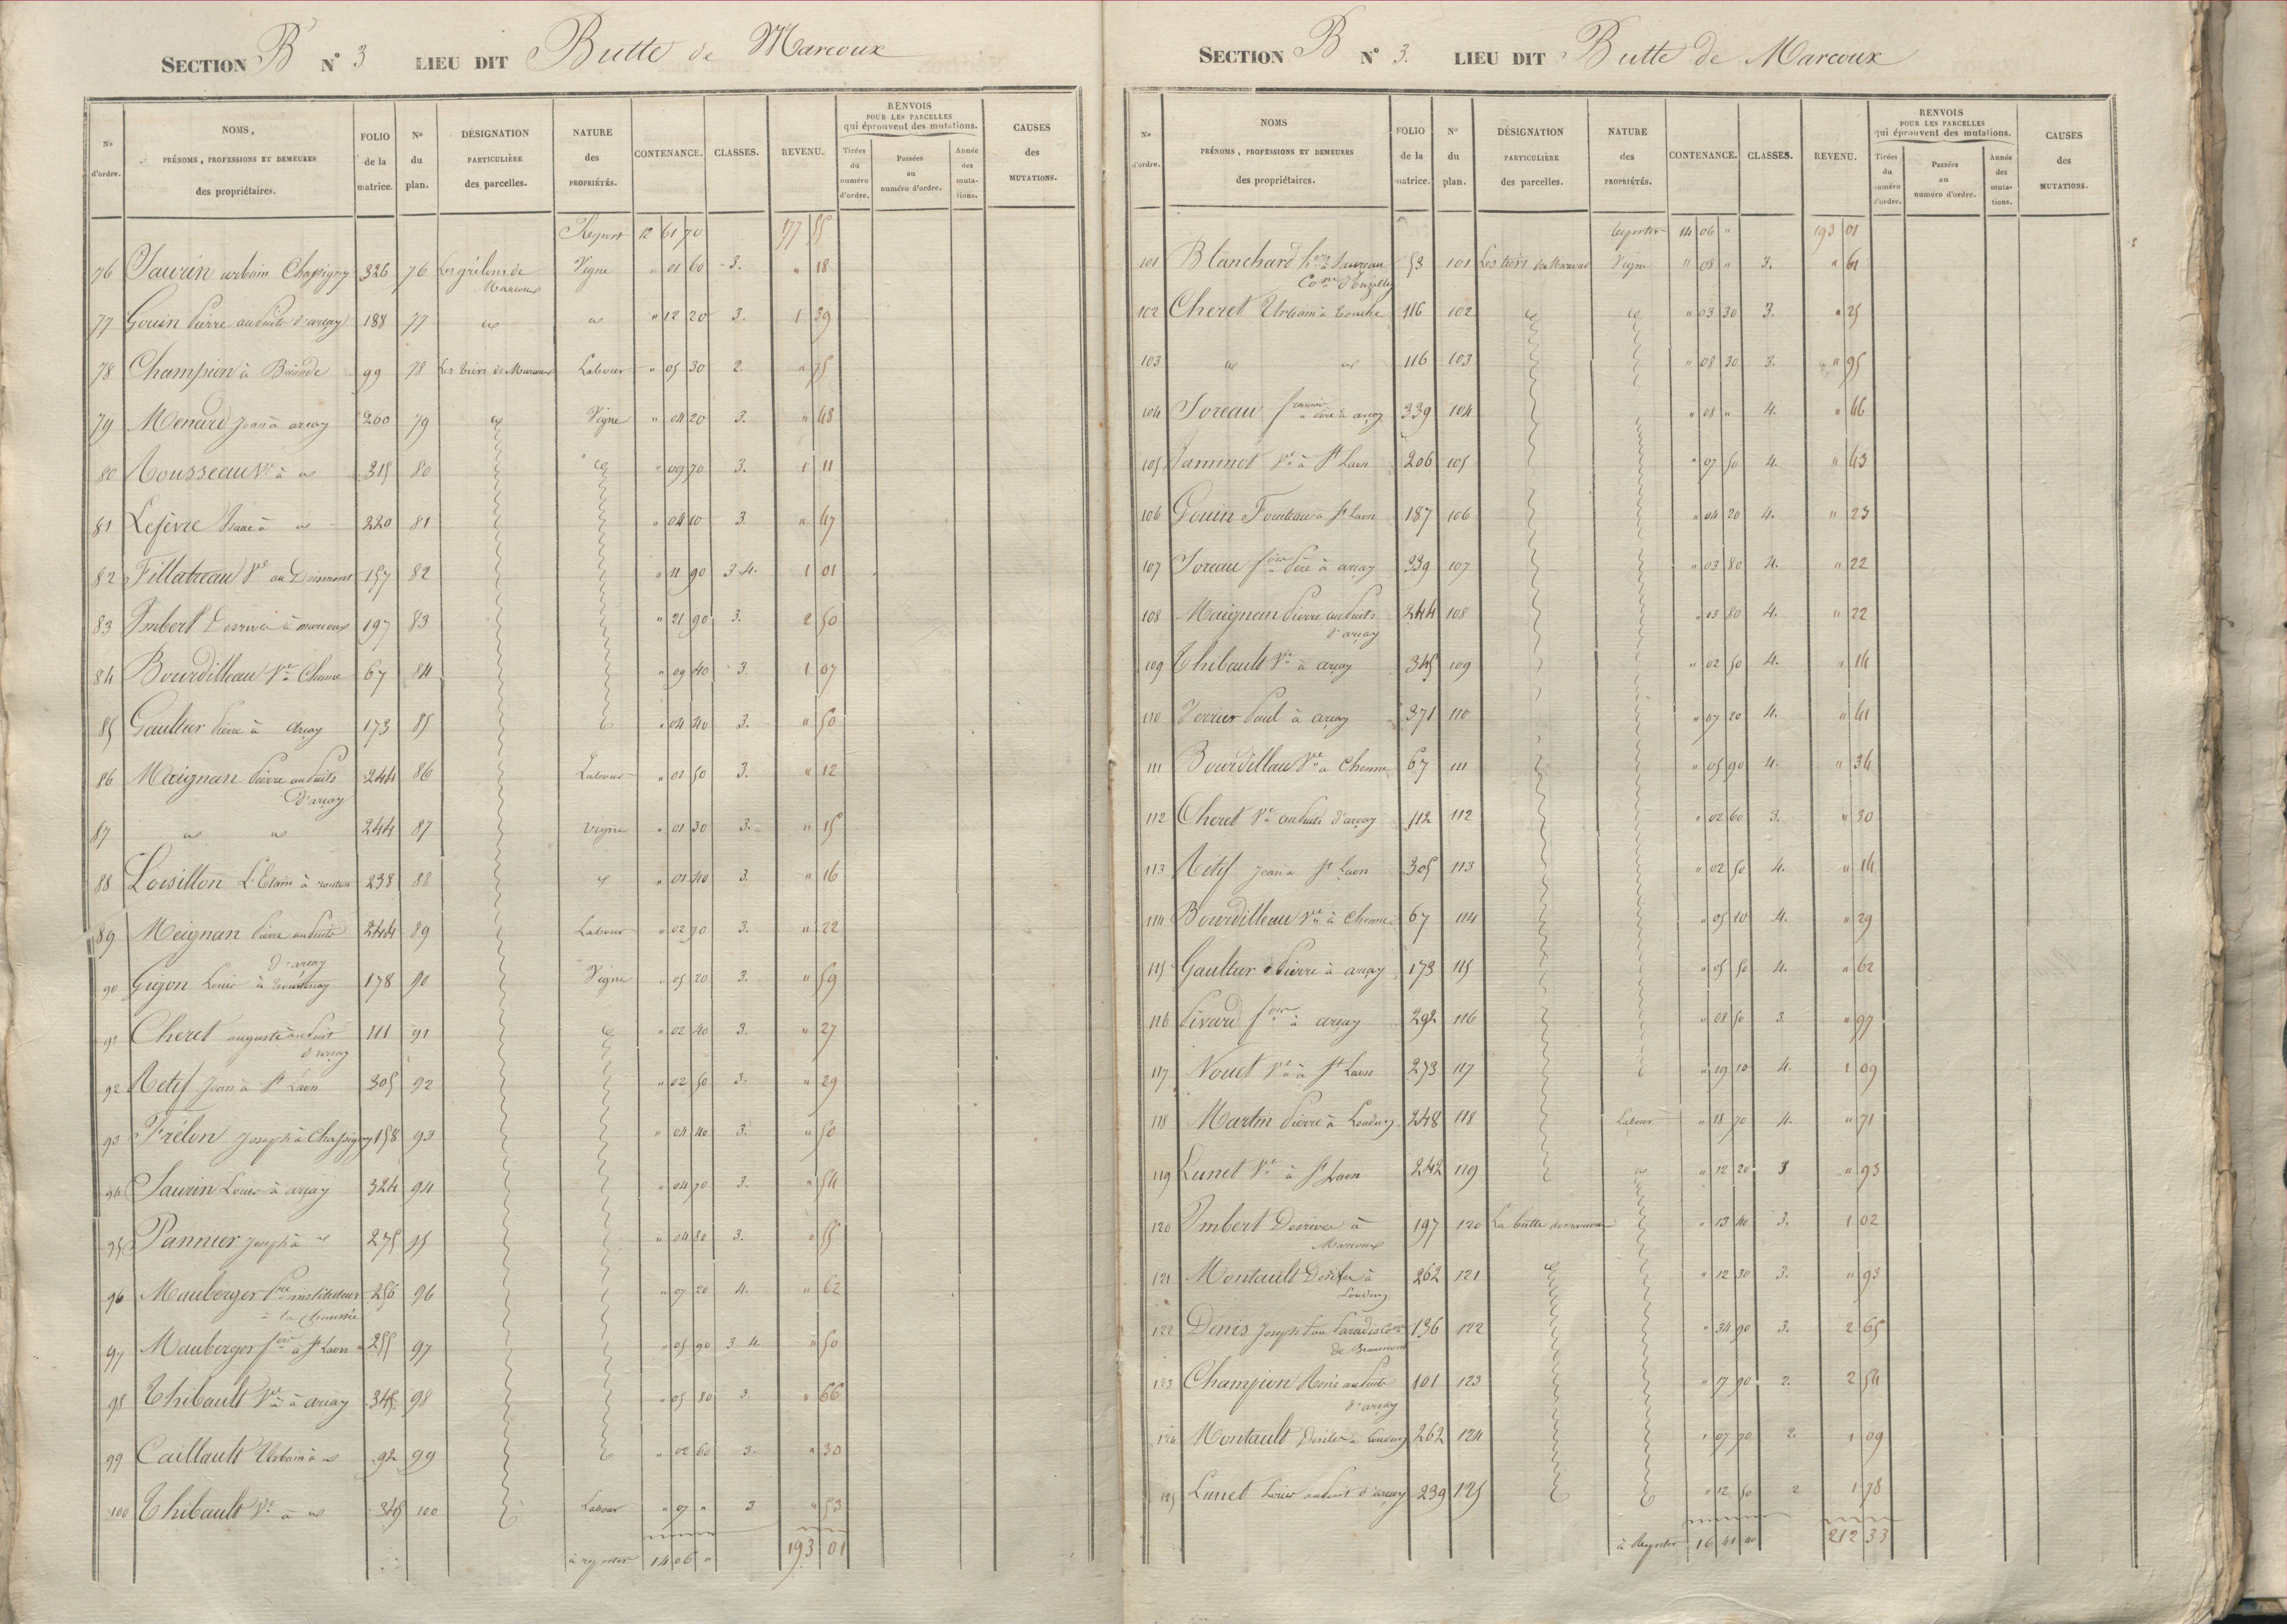 SECTION B N° 3 LIEU DIT Butte de Marcoux
N° d'ordre. NOMS, PRÉNOMS, PROFESSIONS ET DEMEURES des propriétaires. FOLIO de la matrice. N° du plan. DÉSIGNATION PARTICULIÈRE des parcelles. NATURE des PROPRIÉTÉS. CONTENANCE. CLASSES. REVENU. RENVOIS POUR LES PARCELLES qui éprouvent des mutations. Tirées du numéro d'ordre. Passées au numéro d'ordre. Année des mutations. CAUSES des MUTATIONS.
Report 12 61 70 177 55
76 Saurin urbain Chassigny 326 76 Les grélons de Marcoux Vigne " 01 60 3. " 18
77 Gouin Pierre au Puits d'arçay 188 77 " 12 20 3. 1 39
78 Champion à Briande 99 78 Les tiers de Marcoux Labour " 05 30 2. " 75
79 Menard Jean à arçay 260 79 Vigne " 04 20 3. " 48
80 Rousseau Ve à 315 80 " 09 70 3. 1 11
81 Lefèvre Isaac à 220 81 " 04 10 3 " 47
82 Fillatreau Ve au 157 82 " 11 90 3 4. 1 01
83 Imbert Desrives à marcoux 197 83 " 21 90 3. 2 50
84 Bourdilleau Ve à Chenne 67 84 " 09 40 3. 1 07
85 Gaultier Pierre à Arçay 173 85 " 04 40 3. " 50
86 Maignan Pierre au Puits d'arçay 244 86 Labour " 01 50 3. " 12
87 244 87 Vigne " 01 30 3. " 15
88 Loisillon L'Etain à ranton 238 88 " 01 40 3. " 16
89 Meignan Pierre au Puits d'arçay 244 89 Labour " 02 90 3. " 22
90 Gigon Louis à 178 90 Vigne " 05 20 3. " 59
91 Cheret auguste au Puit d'arçay 111 91 " 02 40 3. " 27
92 Retif Jean à St Laon 305 92 " 02 50 3. " 29
93 Frélon Joseph à Chassigny 158 93 " 04 40 3. " 50
94 Saurin Louis à arçay 324 94 " 04 70 3. " 54
95 Pannier Joseph à 275 95 " 04 80 3. " 55
96 Mauberger Pre instituteur à la Chaussée 256 96 " 07 20 4. " 62
97 Mauberger fois à St Laon 255 97 " 05 90 3 4. " 50
98 Thibault Ve à arçay 345 98 " 05 80 3 " 66
99 Caillault Urbain à 92 99 " 02 60 3. " 30
100 Thibault Ve à 345 100 Labour " 07 " 3 " 53
à reporter 14 06 " 193 01
SECTION B N° 3. LIEU DIT Butte de Marcoux
N° d'ordre. NOMS PRÉNOMS, PROFESSIONS ET DEMEURES des propriétaires. FOLIO de la matrice. N° du plan. DÉSIGNATION PARTICULIÈRE des parcelles. NATURE des PROPRIÉTÉS. CONTENANCE. CLASSES. REVENU. RENVOIS POUR LES PARCELLES qui éprouvent des mutations. Tirées du numéro d'ordre. Passées au numéro d'ordre. Année des mutations. CAUSES des MUTATIONS.
Reporter 14 06 " 193 01
101 Blanchard 53 101 Les tiers de Marcoux Vigne " 08 " 3. " 61
102 Cheret Urbain à 116 102 " 03 30 3. " 25
103 116 103 " 08 30 3. " 95
104 Soreau francois père à arçay 339 104 " 08 " 4. " 46
105 Jaminet Ve à St Laon 206 105 " 07 50 4. " 43
106 Gouin Fourteau à St Laon 187 106 " 04 20 4. " 23
107 Soreau fois Père à arçay 339 107 " 03 80 4. " 22
108 Maignan Pierre au Puits d'arçay 244 108 " 03 80 4. " 22
109 Thibault Ve à arçay 345 109 " 02 50 4. " 14
110 Verrier Paul à arçay 371 110 " 07 20 4. " 41
111 Bourdillau Ve à Chenne 67 111 " 05 90 4. " 34
112 Cheret Ve au Puits d'arçay 112 112 " 02 60 3. " 30
113 Retif Jean à St Laon 305 113 " 02 50 4. " 14
114 Bourdilleau Ve à Chenne 67 114 " 05 10 4. " 29
115 Gaultier Pierre à arçay 173 115 " 05 50 4. " 62
116 Pivard fois à arçay 292 116 " 08 50 3 " 97
117 Nouet Ve à St Laon 273 117 " 19 10 4. 1 09
118 Martin Pierre à Loudun 248 118 Labour " 18 70 4. " 71
119 Lunet Ve à St Laon 242 119 " 12 20 3 " 93
120 Imbert Desrives à Marcoux 197 120 La butte de marcoux " 13 40 3. 1 02
121 Montault Desiles à Loudun 262 121 " 12 30 3. " 93
122 Denis Joseph au Paradis Cne de Beaumont 136 122 " 34 90 3. 2 65
123 Champion René au Puits d'arçay 101 123 " 17 90 2. 2 54
124 Montault Desiles à Loudun 262 124 " 07 70 2. 1 09
125 Lunet Louis au Puit d'arçay 239 125 " 12 50 2 1 78
à Reporter 16 41 40 212 33